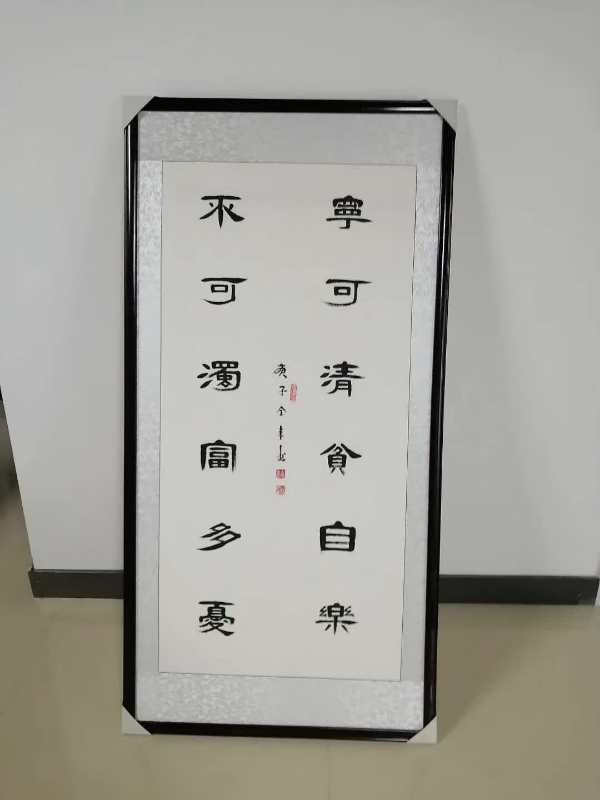 寧可清貧自樂
不可濁富多憂
庚子全來書